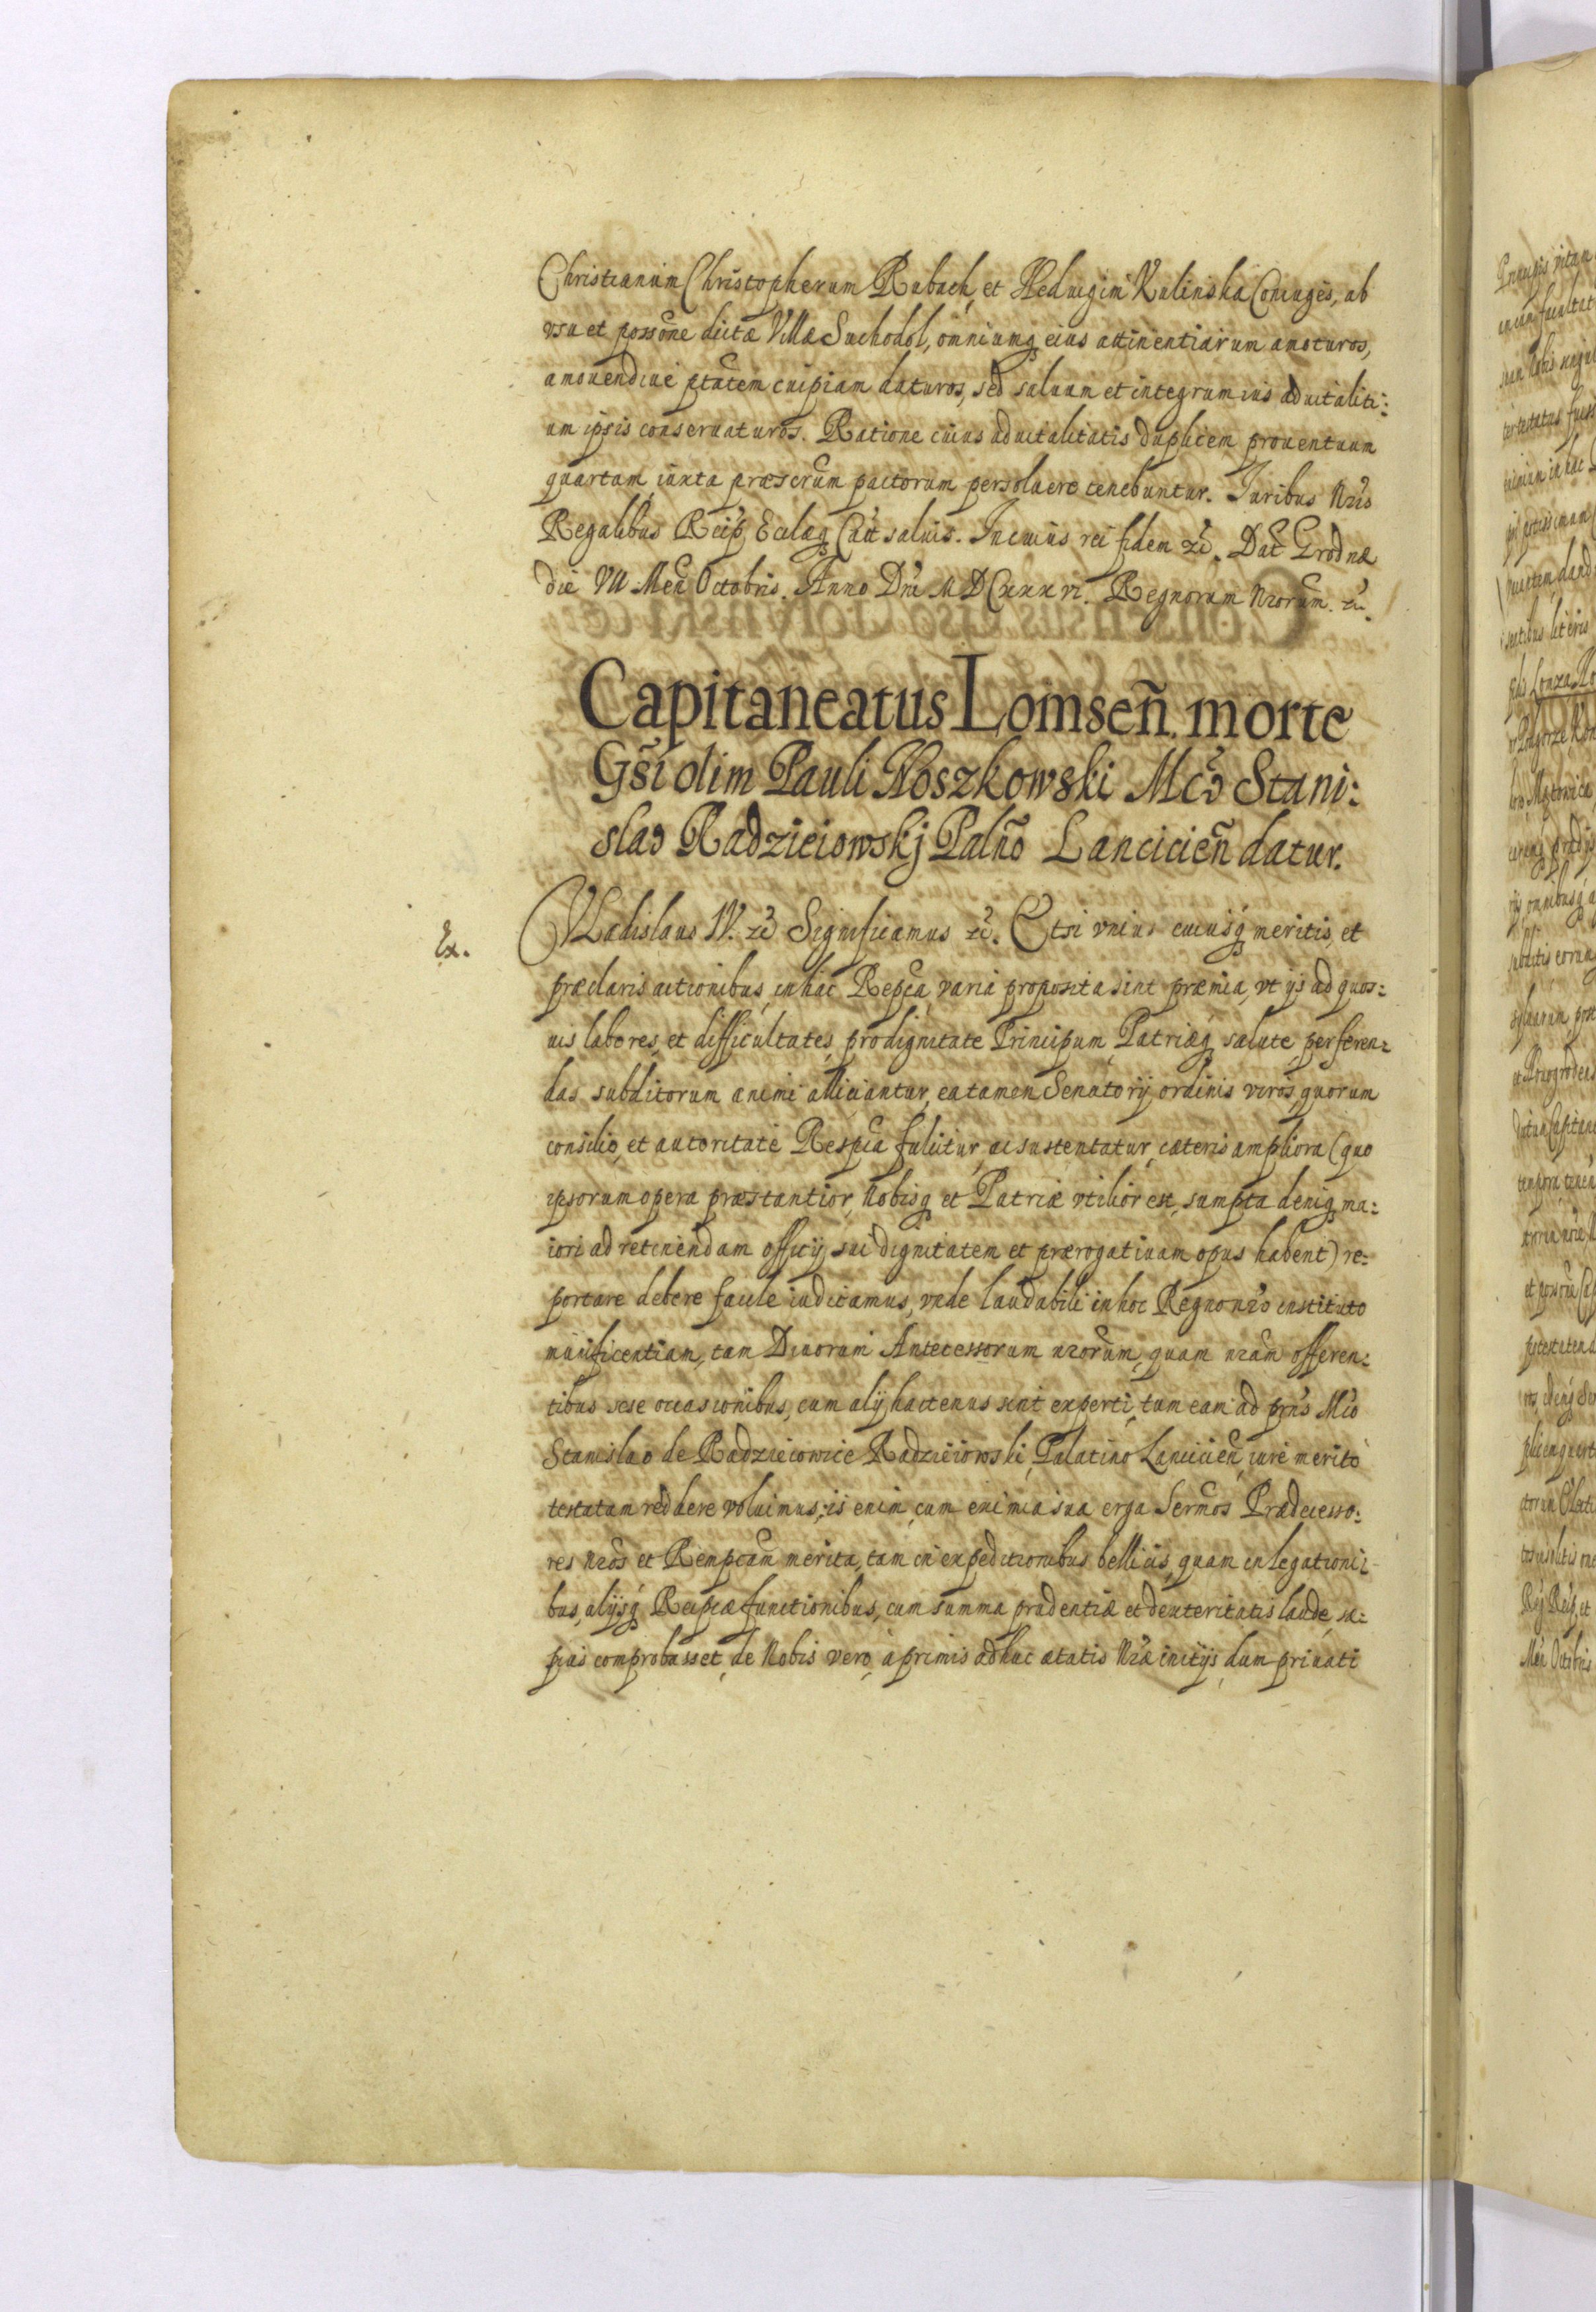 Christianum Christopherum Rubach, et Heduigim Kulinska Coniuges, ab
vsu et possone dictæ Villæ Suchodol, omniumq eius attinentiarum amoturos,
amouendiue ptatem cuipiam daturos, sed saluum et integrum ius aduitaliti:
um ipsis conseruaturos. Ratione cuius aduitalitatis duplicem prouentuum
quartam, iuxta præscrum pactorum persoluere tenebuntur. Iuribus Nris
Regalibus Reip, Eclæq Catt saluis. In cuius rei fidem &c. Dat Grodnæ
die VII Men Octobris. Anno Dni MDCxxxvi. Regnorum Nrorum &c.
Capitaneatus Lomsen. morte
Gsi olim Pauli Noszkowski Mco Stani:
slao Radzieiowskj Palno Lancicien datur.
Ex.
Vladislaus IV. &c Significamus &c. Etsi vnius cuiusq meritis, et
præclaris actionibus, in hac Repca, varia proposita sint præmia, vt ijs ad quos:
uis labores, et difficultates, pro dignitate Principum, Patriæq salute, perferen:
das subditorum animi alliciantur, ea tamen Senatorij ordinis viros, quorum
consilio, et autoritate Respca fulcitur, ac sustentatur, cæteris ampliora (quo
ipsorum opera præstantior, Nobisq et Patriæ vtilior est, sumptu deniq ma:
iori ad retinendam officij sui dignitatem et prærogatiuam opus habent) re:
portare debere facile iudicamus, vnde laudabili in hoc Regno nro instituto
munificentiam, tam Diuorum Antecessorum nrorum, quam nram offeren:
tibus sese occasionibus, cum alij hactenus sint experti, tum eam ad prns Mco
Stanislao de Radzieiowice Radzieiowski, Palatino Lancicien, iure merito
testatam reddere voluimus; is enim, cum eximia sua erga Sermos Prædecesso:
res Nros et Rempcam merita, tam in expeditionibus bellicis, quam in legationi:
bus, alijsq Reipcæ functionibus, cum summa prudentiæ et dexteritatis laude, sæ:
pius comprobasset, de Nobis vero, a primis adhuc ætatis Nræ initijs, dum priuati